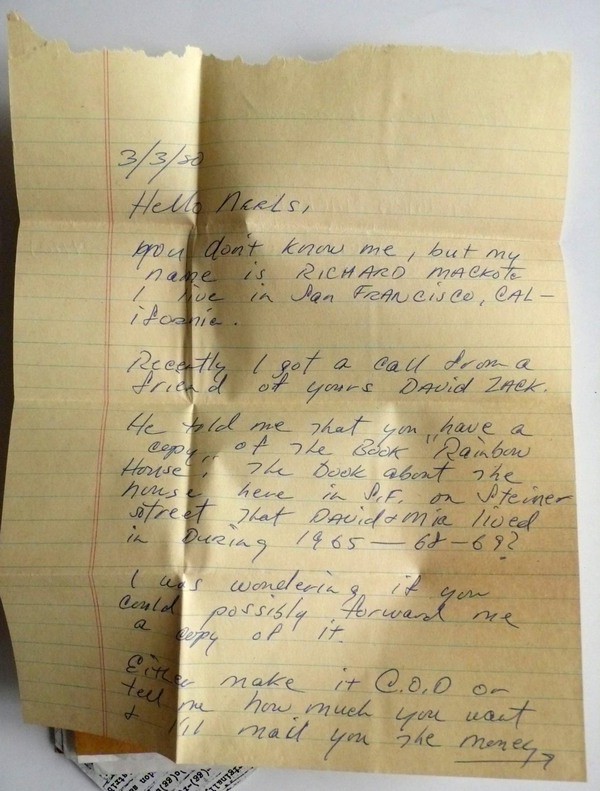 3/3/80
Hello Niels,
you don't know me, but my
name is RICHARD MACKOTE
I live in San FRANCISCO, CAL-
ifornia.
Recently I got a call from a
friend of yours DAVID ZACK.
He told me that you have a
copy of the Book "Rainbow
House", the book about the
house here in S.F. on Steiner
street that DAVID & Mia lived
in During 1965 — 68-69?
I was wondering if you
could possibly forward me
a copy of it.
Either make it C.O.D or
tell me how much you want
& I'll mail you the money